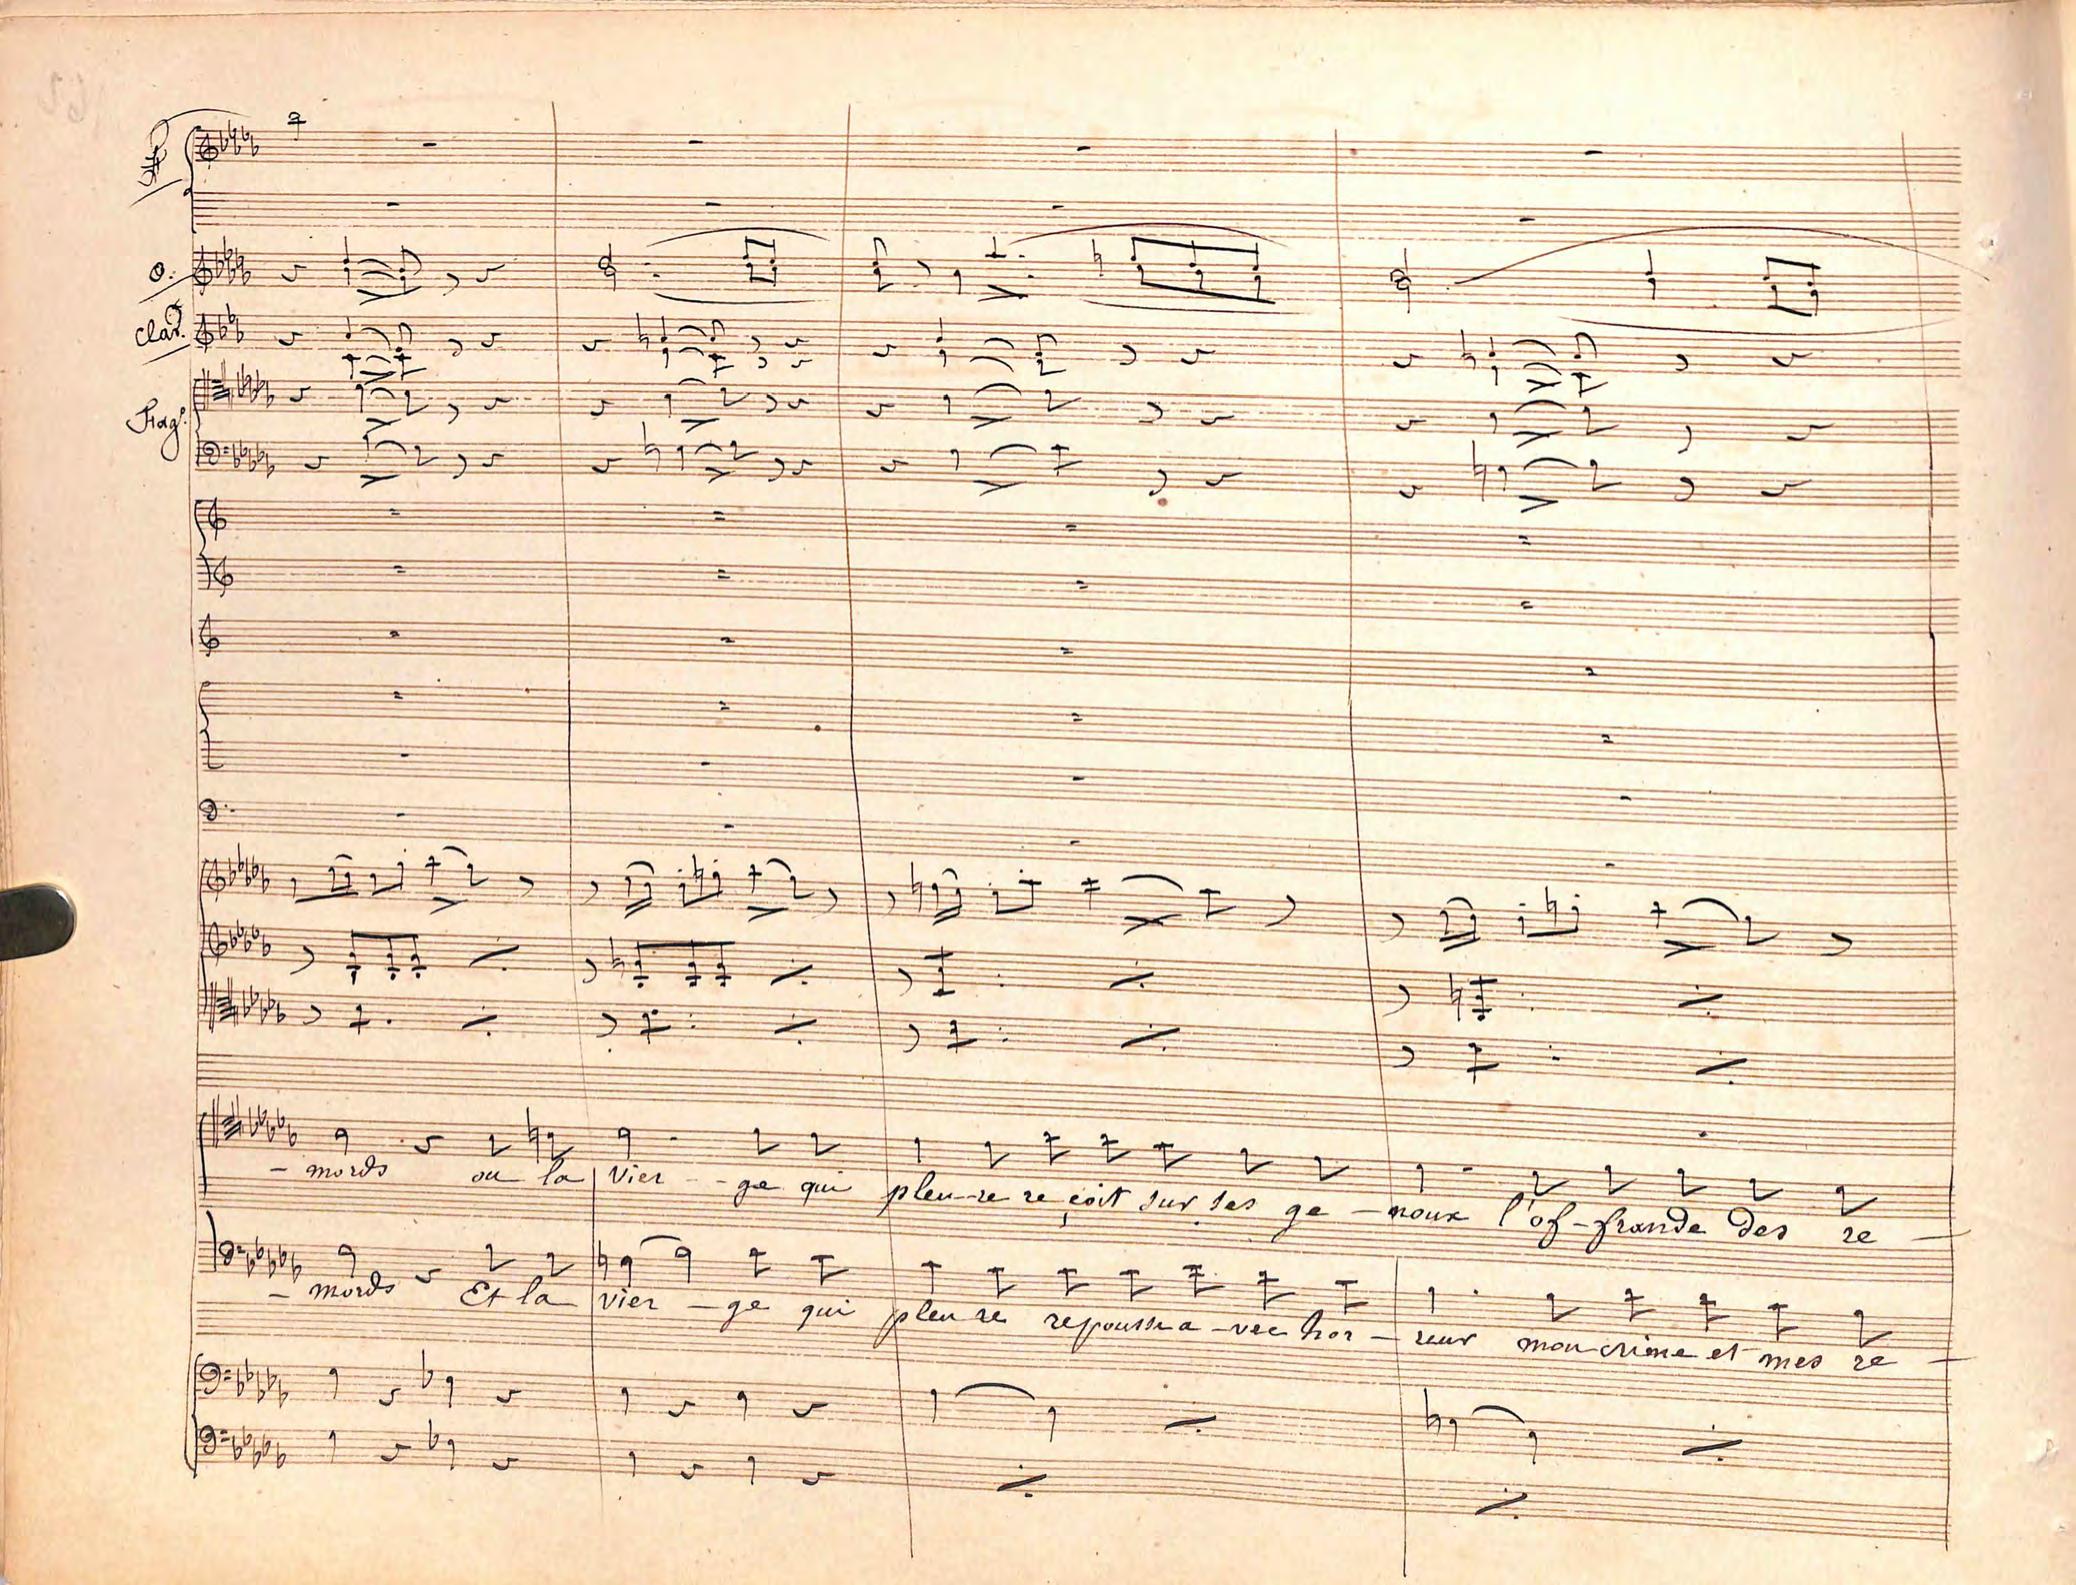 fl
o.
Clar.
Fag.
- mords ou la vier - - ge qui pleu-re re çoit sur ses ge - noux l'of-frande des re -
- mords Et la vier - ge qui pleu re repousse a-vec hor - reur mon crime et mes re -